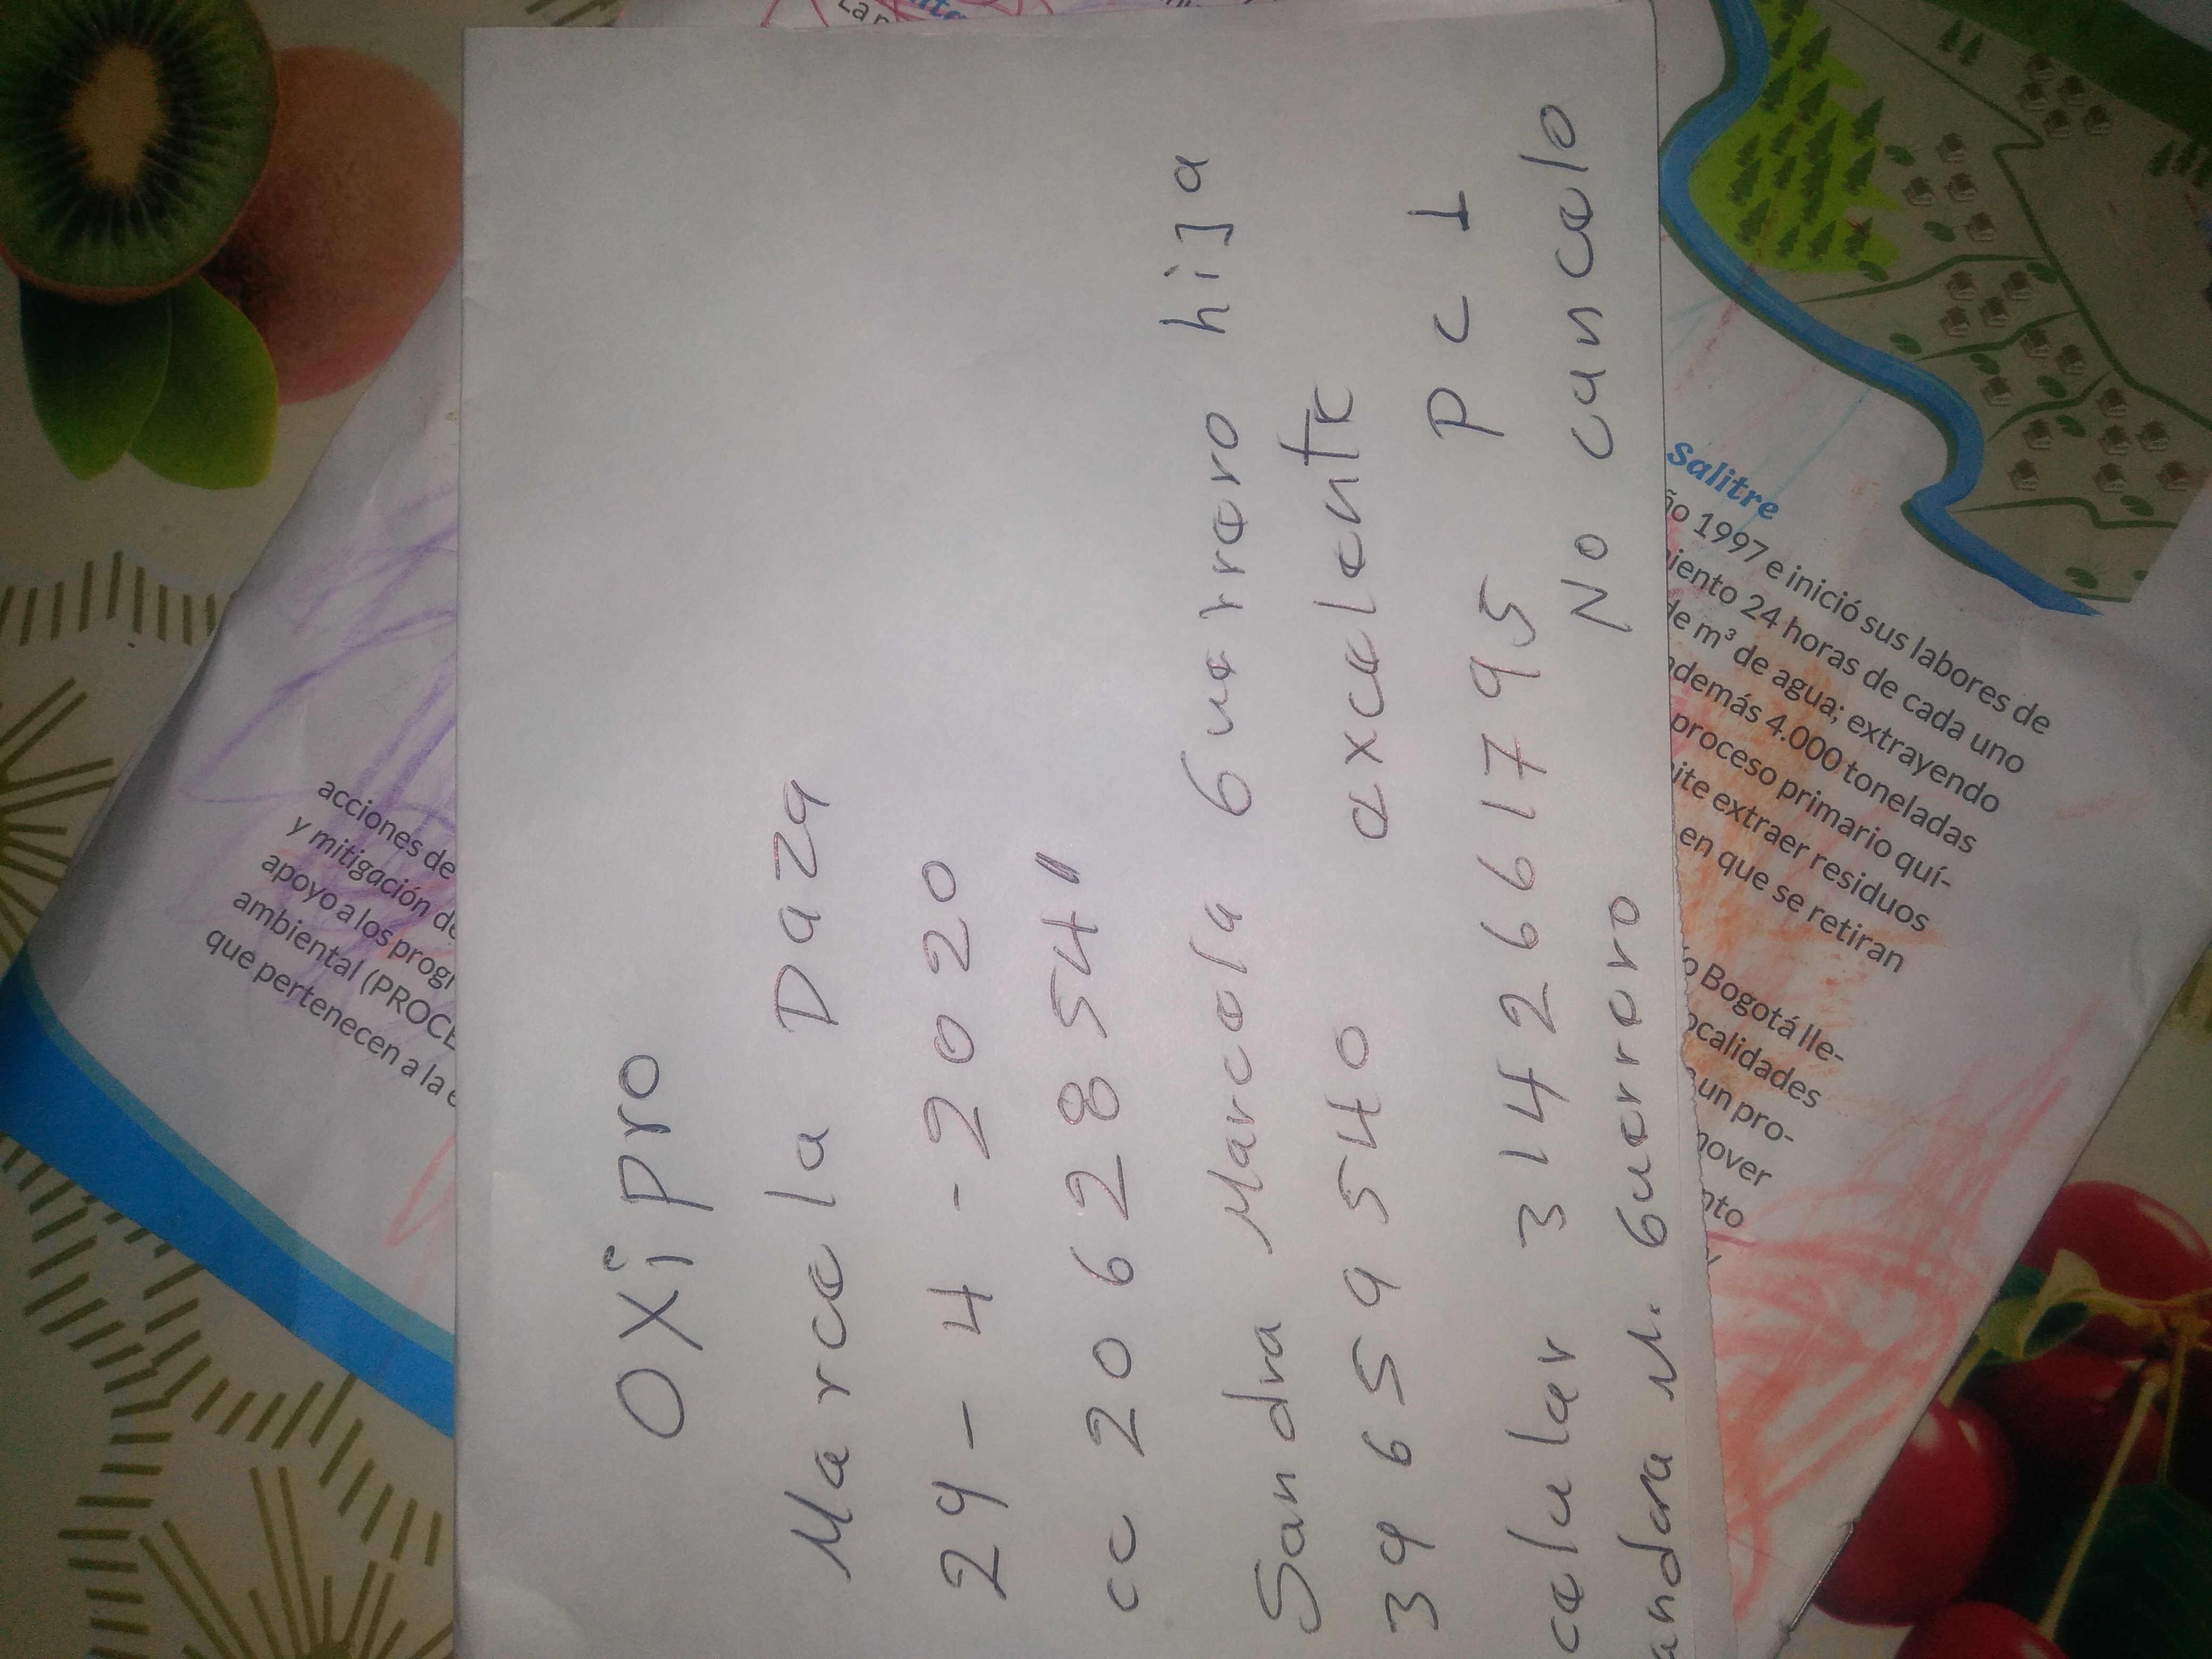 OXiPro
Marcela Daza
29-4-2020
cc 20628541
Sandra Marcela Guerrero hija
39659540 excelente
celular 3142661795 Pct
andara M. Guerrero No cancelo
acciones de
y mitigación de
apoyo a los progr
ambiental (PROCE
que pertenecen a la e
Salitre
ño 1997 e inició sus labores de
iento 24 horas de cada uno
de m³ de agua; extrayendo
además 4.000 toneladas
proceso primario quí-
ite extraer residuos
en que se retiran
o Bogotá lle-
ocalidades
un pro-
nover
nto